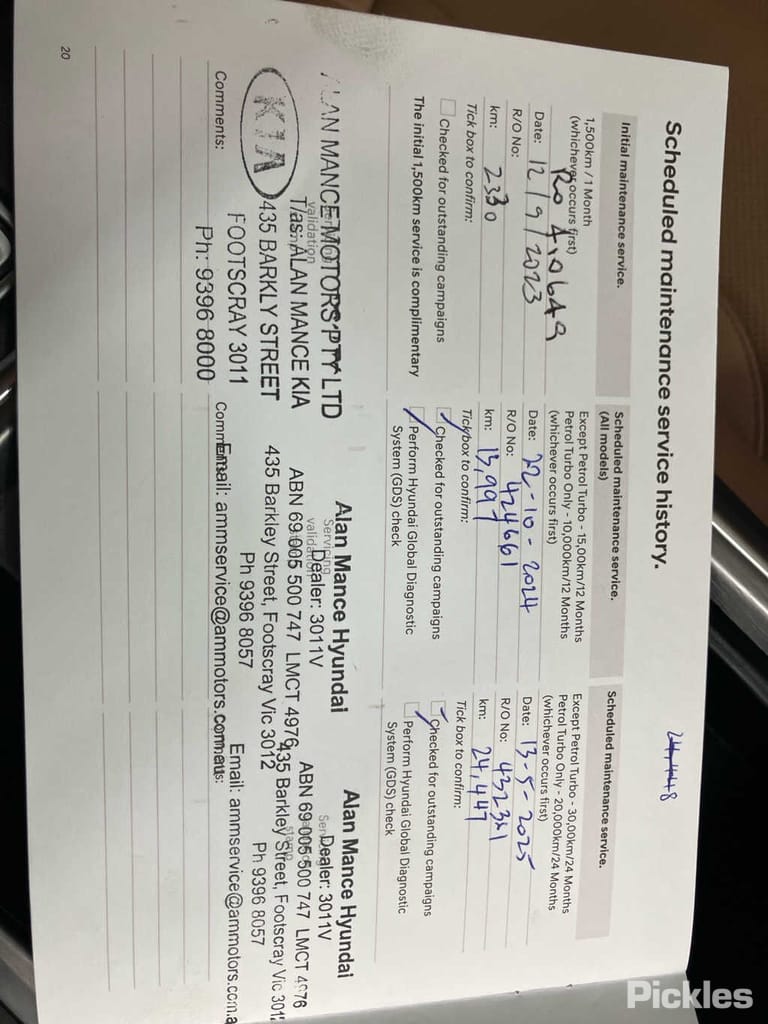 Scheduled maintenance service history.
Initial maintenance service.
1,500km / 1 Month
(whichever occurs first)
Ro 410649
Date: 12/9/2023
R/O No:
km: 2330
Tick box to confirm:
Checked for outstanding campaigns
The initial 1,500km service is complimentary
ALAN MANCE MOTORS PTY LTD
validation
T/as: ALAN MANCE KIA
KIA
435 BARKLY STREET
FOOTSCRAY 3011
Ph: 9396 8000
Comments:
Scheduled maintenance service.
(All models)
Except Petrol Turbo - 15,00km/12 Months
Petrol Turbo Only - 10,000km/12 Months
(whichever occurs first)
Date: 22-10-2024
R/O No: 424661
km: 15,997
Tick box to confirm:
Checked for outstanding campaigns
Perform Hyundai Global Diagnostic
System (GDS) check
Alan Mance Hyundai
Servicing
Dealer: 3011V
validation
ABN 69 005 500 747 LMCT 4976
435 Barkley Street, Footscray Vic 3012
Ph 9396 8057
Email: ammservice@ammotors.com
Scheduled maintenance service.
Except Petrol Turbo - 30,00km/24 Months
Petrol Turbo Only - 20,000km/24 Months
(whichever occurs first)
Date: 13-5-2025
R/O No: 432341
km: 24,447
Tick box to confirm:
Checked for outstanding campaigns
Perform Hyundai Global Diagnostic
System (GDS) check
Alan Mance Hyundai
Dealer: 3011V
ABN 69 005 500 747 LMCT 4976
435 Barkley Street, Footscray Vic 3012
Ph 9396 8057
Email: ammservice@ammotors.com.a
20
Pickles